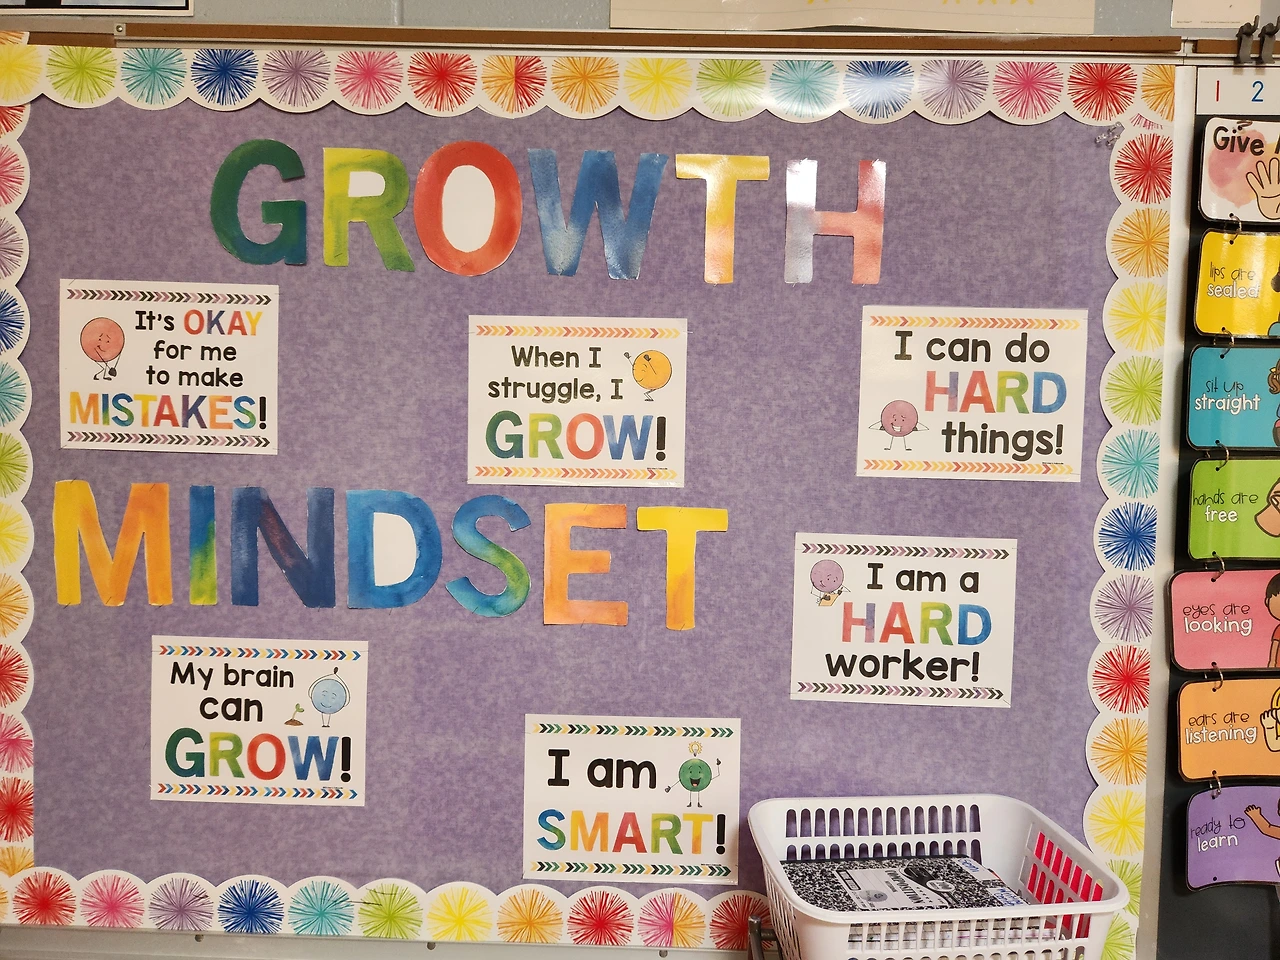 GROWTH
It's OKAY
for me
to make
MISTAKES!
When I
struggle, I
GROW!
I can do
HARD
things!
MINDSET
I am a
HARD
worker!
My brain
can
GROW!
I am
SMART!
1 2
Give
lips are
sealed
sit up
straight
hands are
free
eyes are
looking
ears are
listening
ready to
learn